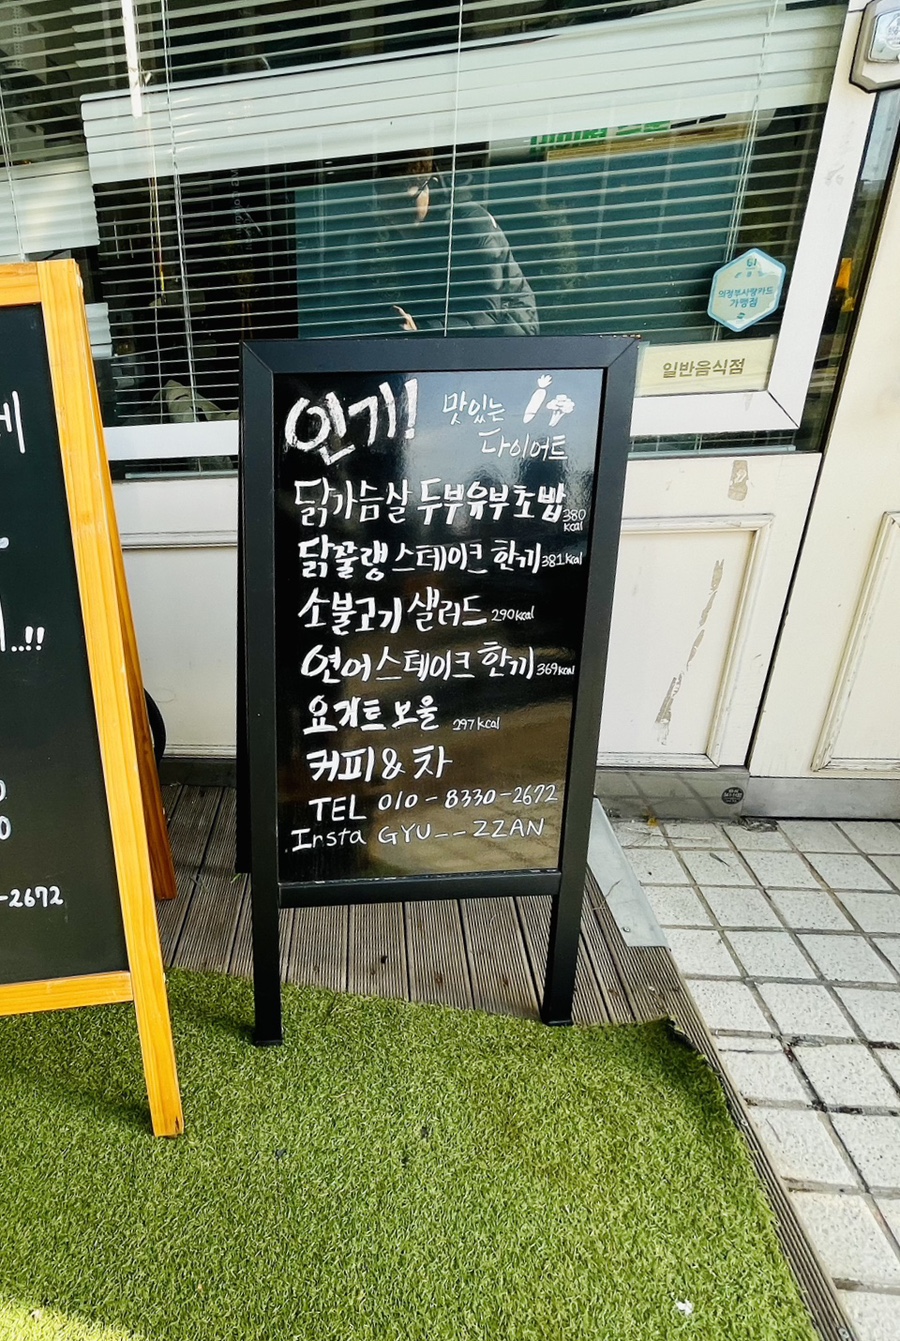 인기! 맛있는
다이어트
닭가슴살 두부유부초밥 380
kcal
닭꼴랭 스테이크 한끼 381kcal
소불고기 샐러드 290kcal
연어스테이크 한끼 369kcal
요거트 보울 297kcal
커피 & 차
TEL 010-8330-2672
Insta GYU__ZZAN
네
..!!
0
0
-2672
의정부사랑카드
가맹점
일반음식점